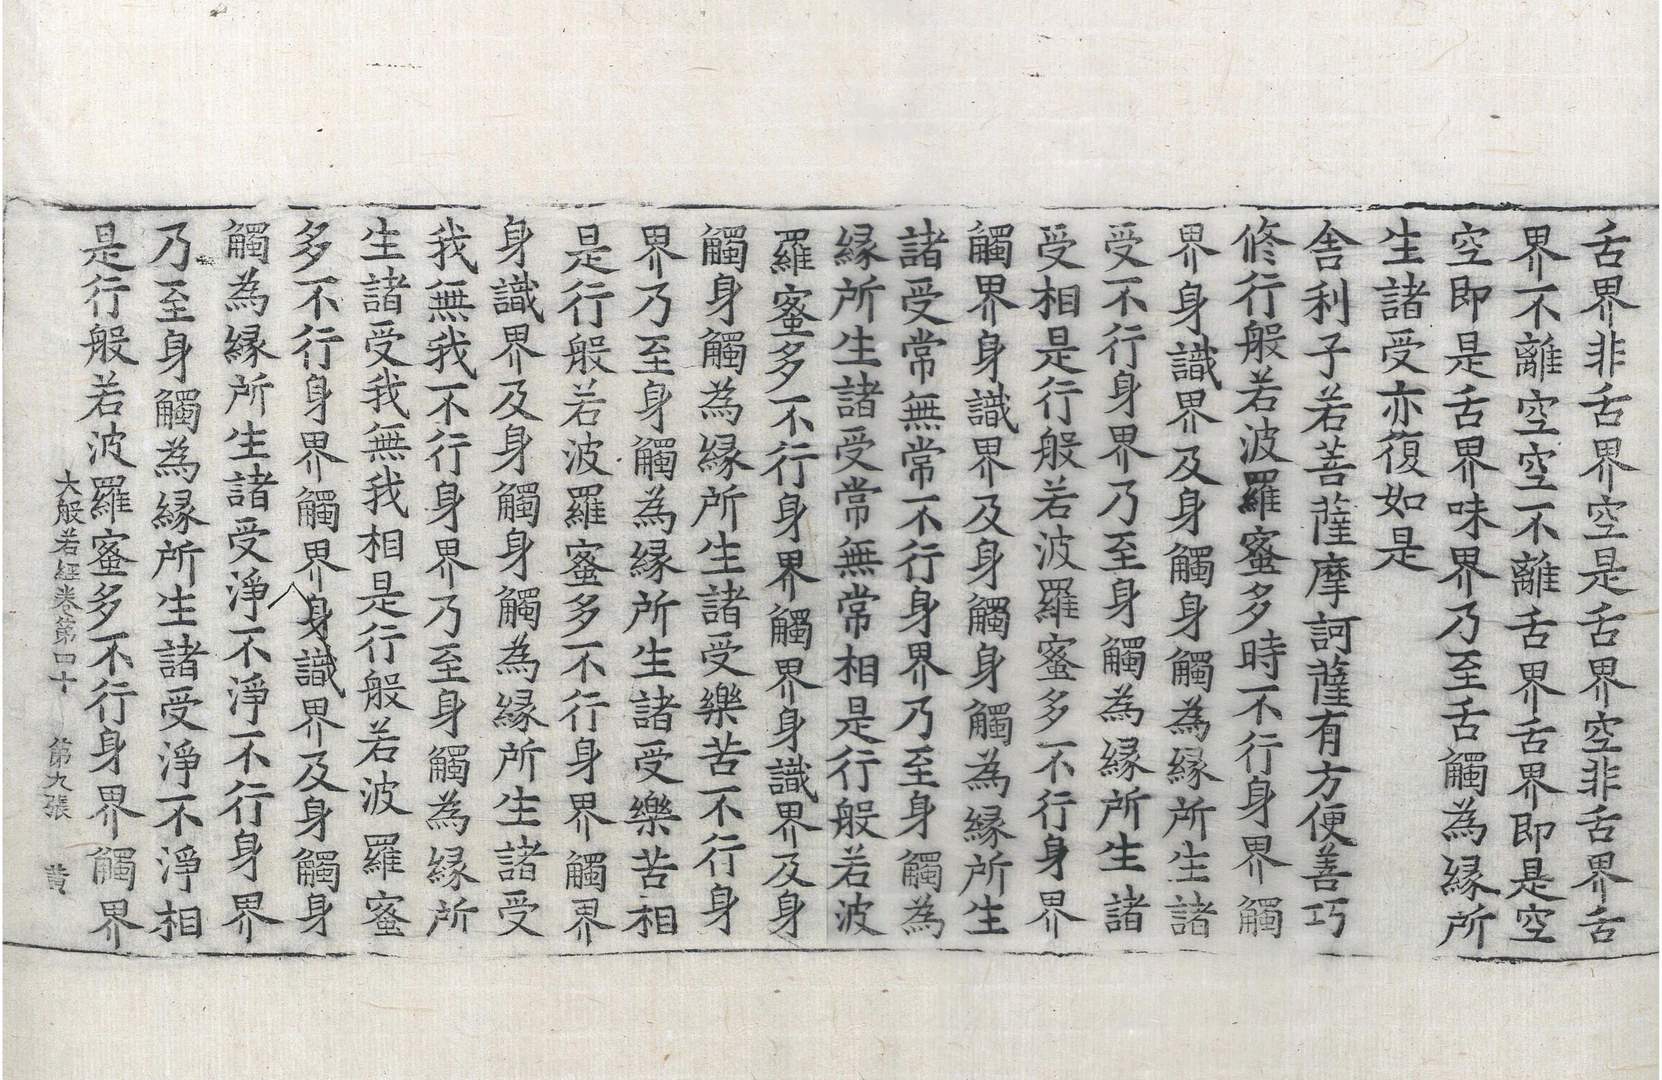 舌界非舌界空是舌界空非舌界舌
界不離空空不離舌界舌界即是空
空即是舌界味界乃至舌觸為縁所
生諸受亦復如是
舍利子若菩薩摩訶薩有方便善巧
修行般若波羅蜜多時不行身界觸
界身識界及身觸身觸為縁所生諸
受不行身界乃至身觸為縁所生諸
受相是行般若波羅蜜多不行身界
觸界身識界及身觸身觸為縁所生
諸受常無常不行身界乃至身觸為
縁所生諸受常無常相是行般若波
羅蜜多不行身界觸界身識界及身
觸身觸為縁所生諸受樂苦不行身
界乃至身觸為縁所生諸受樂苦相
是行般若波羅蜜多不行身界觸界
身識界及身觸身觸為縁所生諸受
我無我不行身界乃至身觸為縁所
生諸受我無我相是行般若波羅蜜
多不行身界觸界身識界及身觸身
觸為縁所生諸受淨不淨不行身界
乃至身觸為縁所生諸受淨不淨相
是行般若波羅蜜多不行身界觸界
大般若經卷第四十 第九張 黄